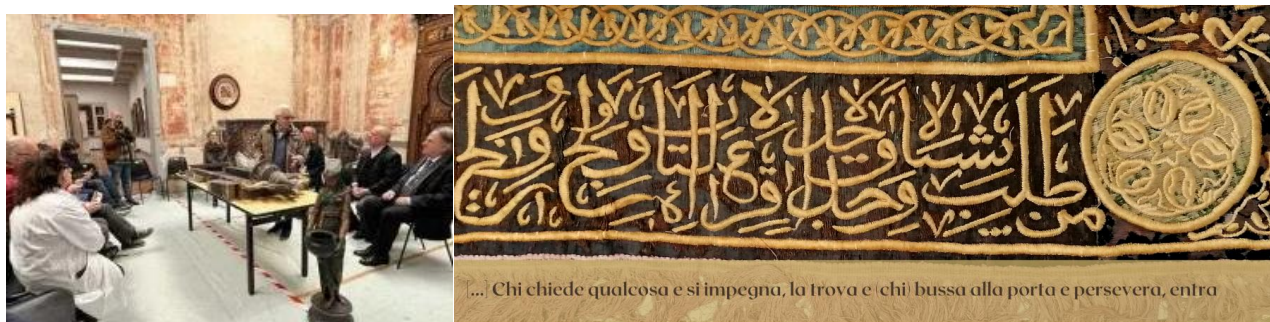 من طلب شيئا وجد وجد وقرع الباب ولج ولج
[...] Chi chiede qualcosa e si impegna, la trova e (chi) bussa alla porta e persevera, entra